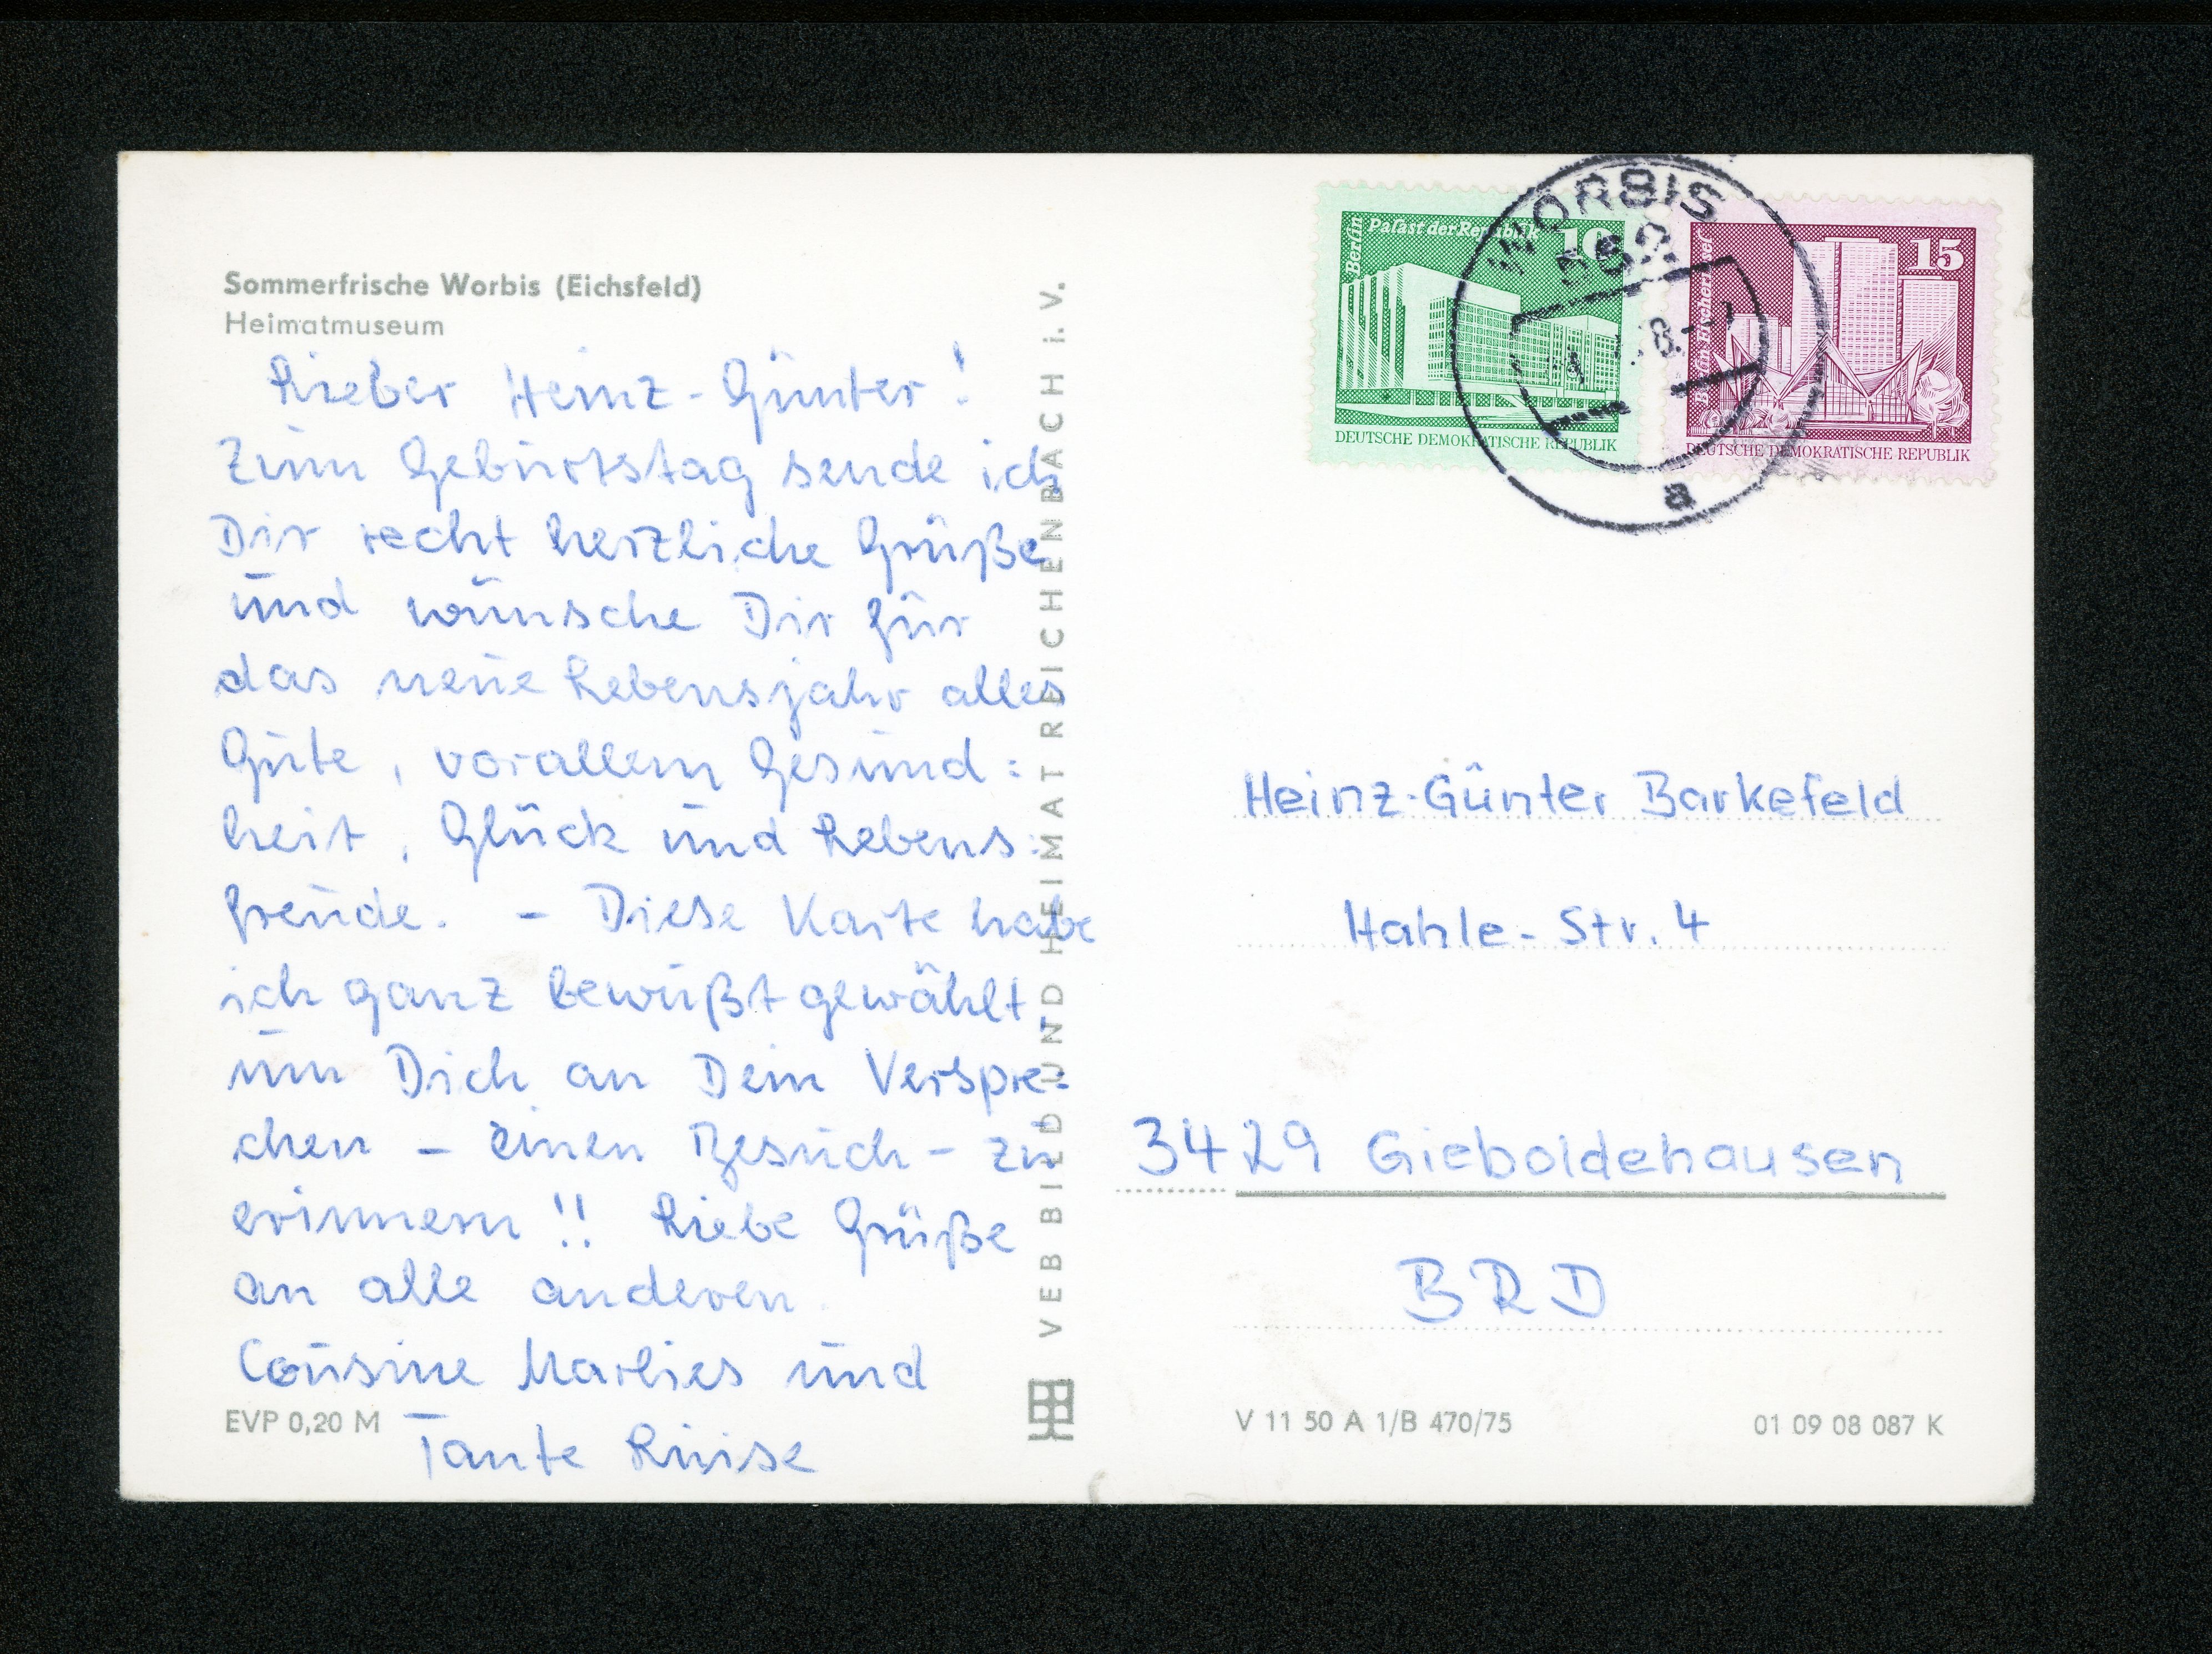 Sommerfrische Worbis (Eichsfeld)
Heimatmuseum
Lieber Heinz-Günter!
Zum Geburtstag sende ich
Dir recht herzliche Grüße
und wünsche Dir für
das neue Lebensjahr alles
Gute, vorallem Gesund=
heit, Glück und Lebens=
freude. - Diese Karte habe
ich ganz bewußt gewählt,
um Dich an Dein Verspre=
chen - einen Besuch - zu
erinnern!! Liebe Grüße
an alle anderen
Cousine Marlies und
Tante Luise
EVP 0,20 M
VEB BILD UND HEIMAT REICHENBACH i. V.
Berlin Palast der Republik 10
DEUTSCHE DEMOKRATISCHE REPUBLIK
Berlin Fischerinsel 15
DEUTSCHE DEMOKRATISCHE REPUBLIK
WORBIS
a
Heinz-Günter Barkefeld
Hahle-Str. 4
3429 Gieboldehausen
BRD
V 11 50 A 1/B 470/75
01 09 08 087 K